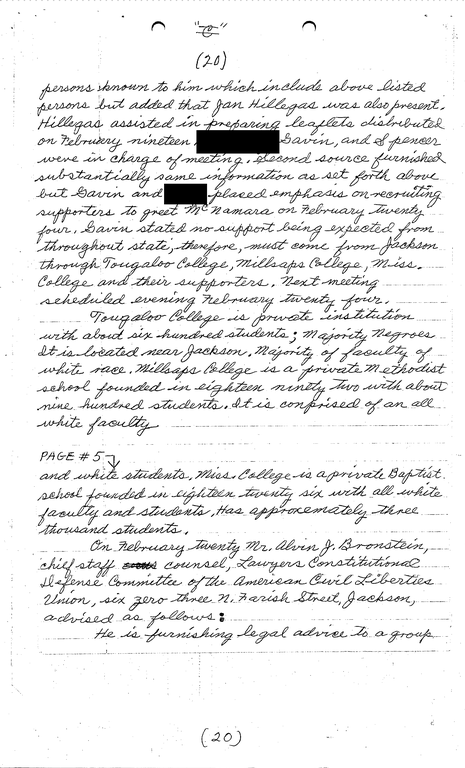 "C"
(20)
persons known to him which include above listed
persons but added that Jan Hillegas was also present.
Hillegas assisted in preparing leaflets distributed
on February nineteen. Gavin, and Spencer
were in charge of meeting. Second source furnished
substantially same information as set forth above
but Gavin and placed emphasis on recruiting
supporters to greet McNamara on February twenty
four. Gavin stated no support being expected from
throughout state; therefore, must come from Jackson
through Tougaloo College, Millsaps College, Miss.
College and their supporters. Next meeting
scheduled evening February twenty four.
Tougaloo College is private institution
with about six hundred students; Majority Negroes
It is located near Jackson. Majority of faculty of
white race. Millsaps College is a private Methodist
school founded in eighteen ninety two with about
nine hundred students. It is conprised of an all
white faculty
PAGE # 5
and white students. Miss. College is a private Baptist
school founded in eighteen twenty six with all white
faculty and students. Has approxemately three
thousand students.
On February twenty Mr. Alvin J. Bronstein,
chief staff counsel, Lawyers Constitutional
Defense Committee of the American Civil Liberties
Union, six zero three N. Farish Street, Jackson,
advised as follows:
He is furnishing legal advice to a group
(20)